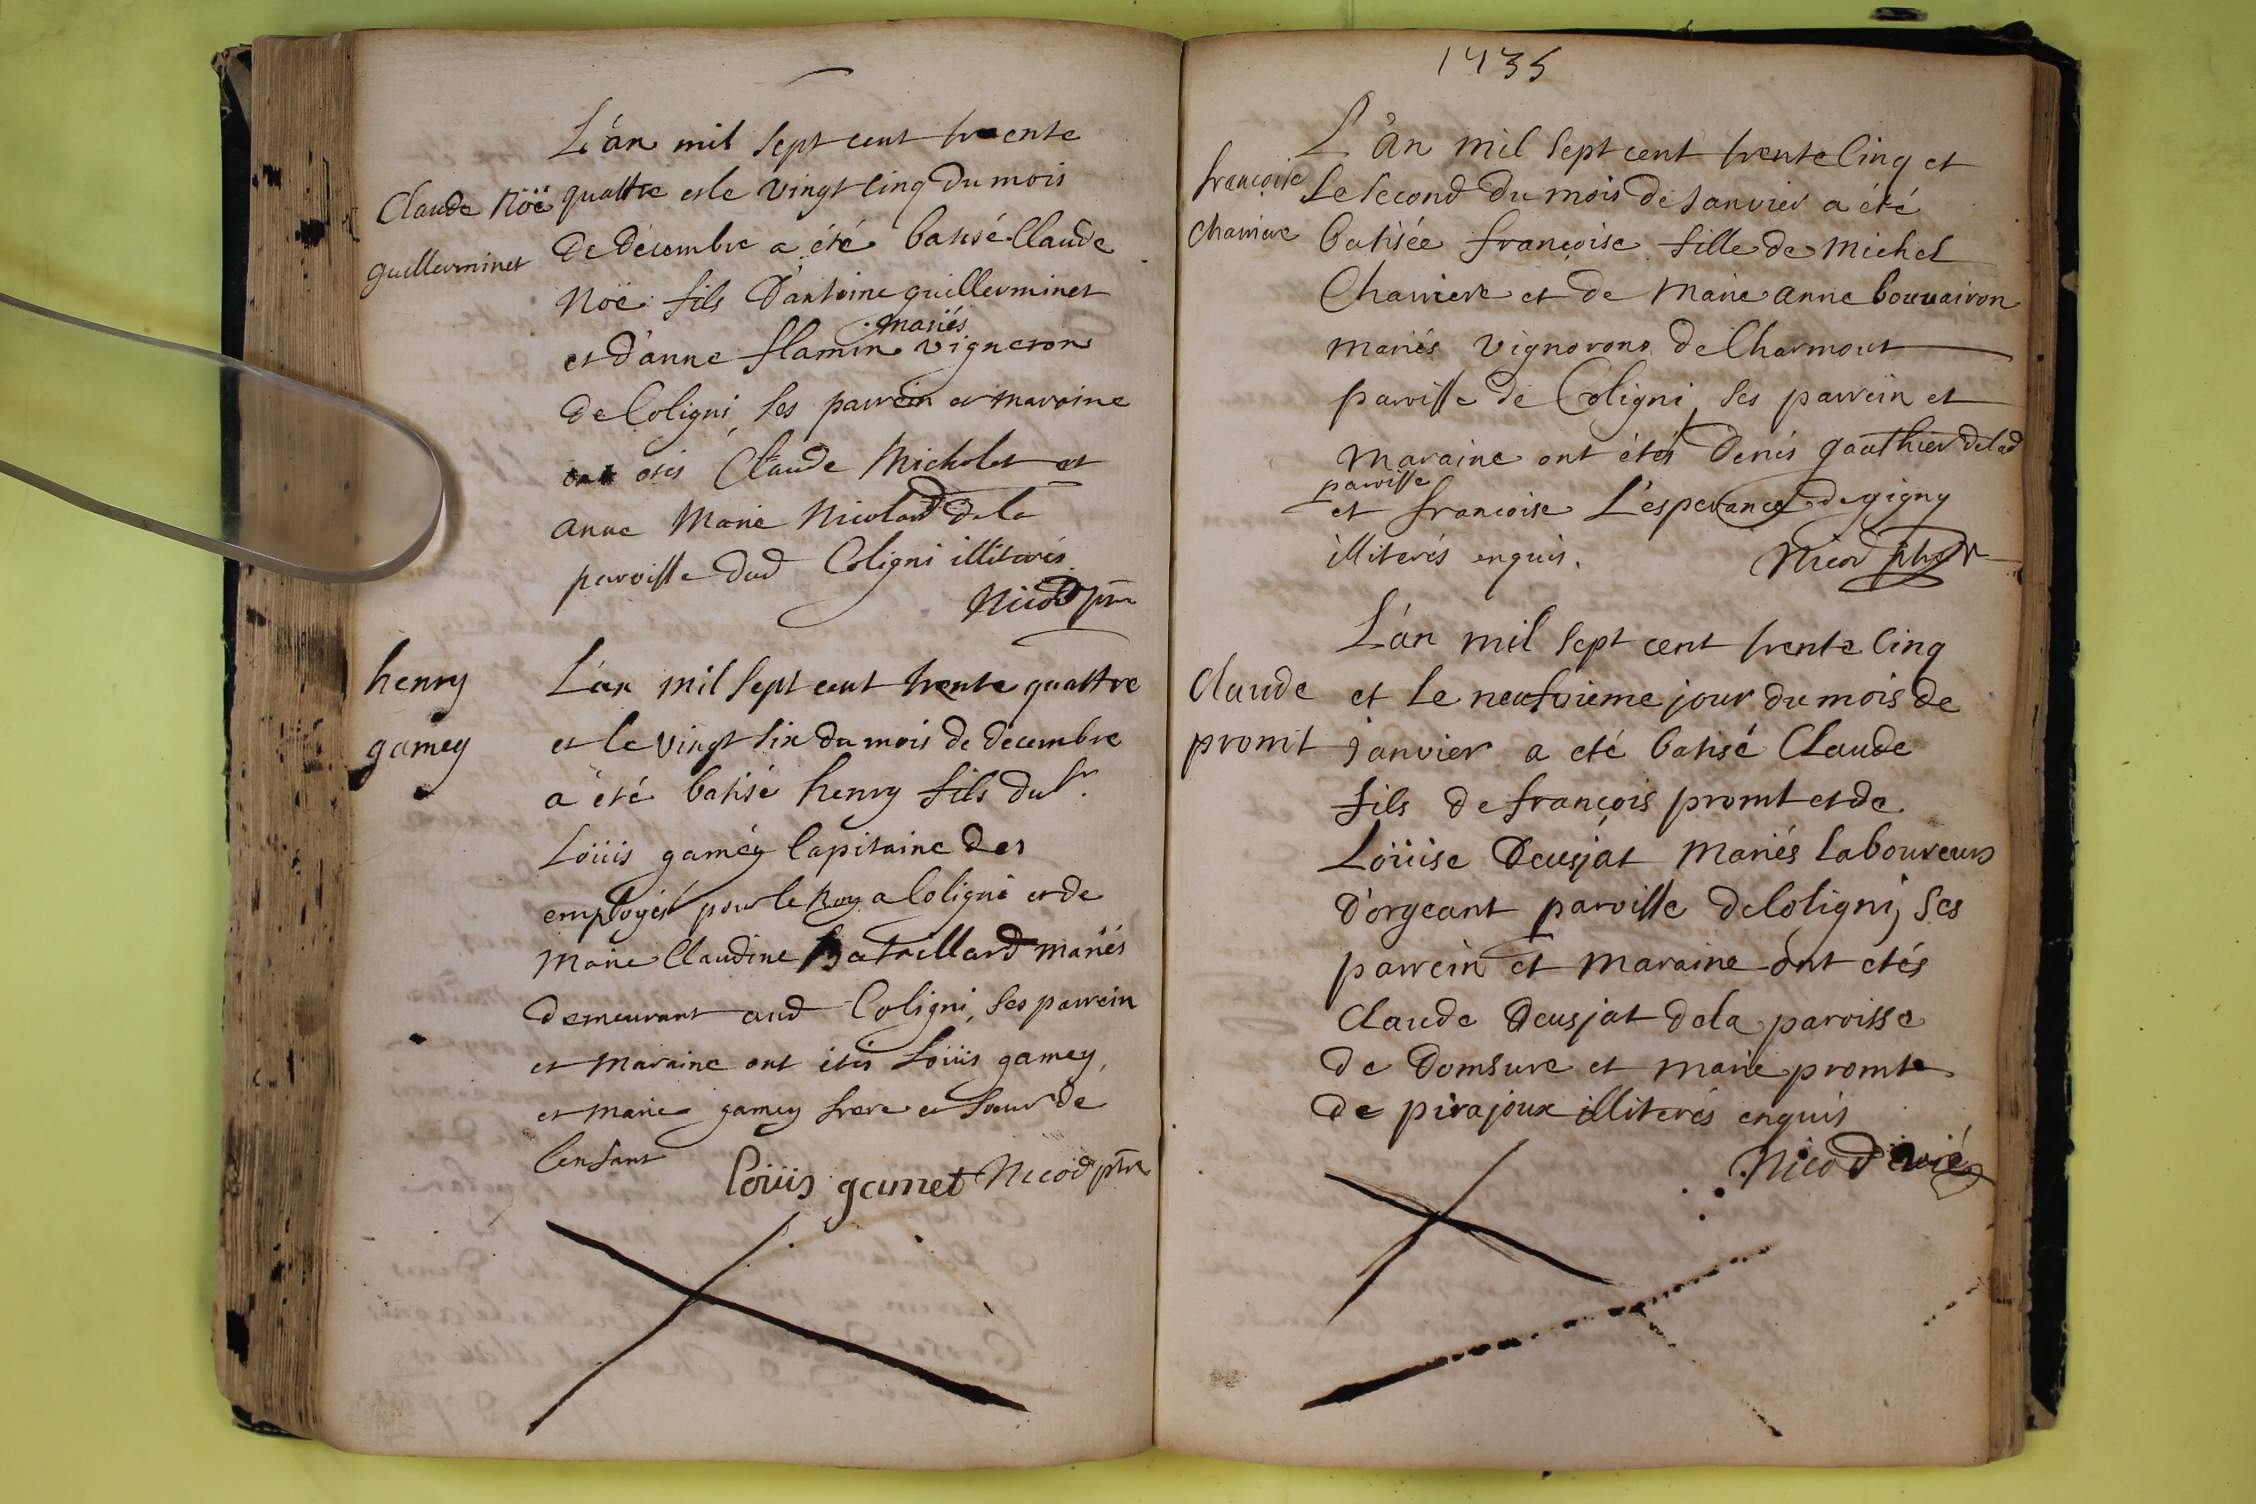 Claude Noë
guillerminet
L'an mil sept cent trente
quattre et le vingt cinq du mois
de décembre a été batisé Claude
Noë fils d'antoine guillerminet
mariés
et d'anne flamin vigneron
de Coligni, ses parrein et maraine
ont étés Claude Micholet et
anne Marie Nicoland de la
paroisse dud Coligni illiterés
Nicod ptre
henry
gamey
L'an mil sept cent trente quattre
et le vingt six du mois de decembre
a été batisé henry fils du Sr.
Loüis gamey Capitaine des
employés pour le Roy a Coligni et de
Marie Claudine Bataillard mariés
demeurant aud Coligni, ses parrein
et maraine ont étés Loüis gamey,
et marie gamey frere et soeur de
l'enfant
Loüis gamet Nicod ptre
1735
françoise
Charriere
L'an mil sept cent trente cinq et
le second du mois de Janvier a été
batisée françoise fille de Michel
Charriere et de Marie anne bouvairon
mariés vignorons de Charmout
paroisse de Coligni, ses parrein et
maraine ont étés Denis gauthier de lad
paroisse
et françoise L'esperance de gigny
illiterés enquis.
Nicod ptre
Claude
promt
L'an mil sept cent trente cinq
et le neufvieme jour du mois de
janvier a eté batisé Claude
fils de françois promt et de
Loüise Deusjat Mariés laboureurs
D'orgeant paroisse de Coligni, ses
parrein et maraine ont etés
Claude Deusjat de la paroisse
de Domsure et marie promte
de pirajoux illiterés enquis
Nicod